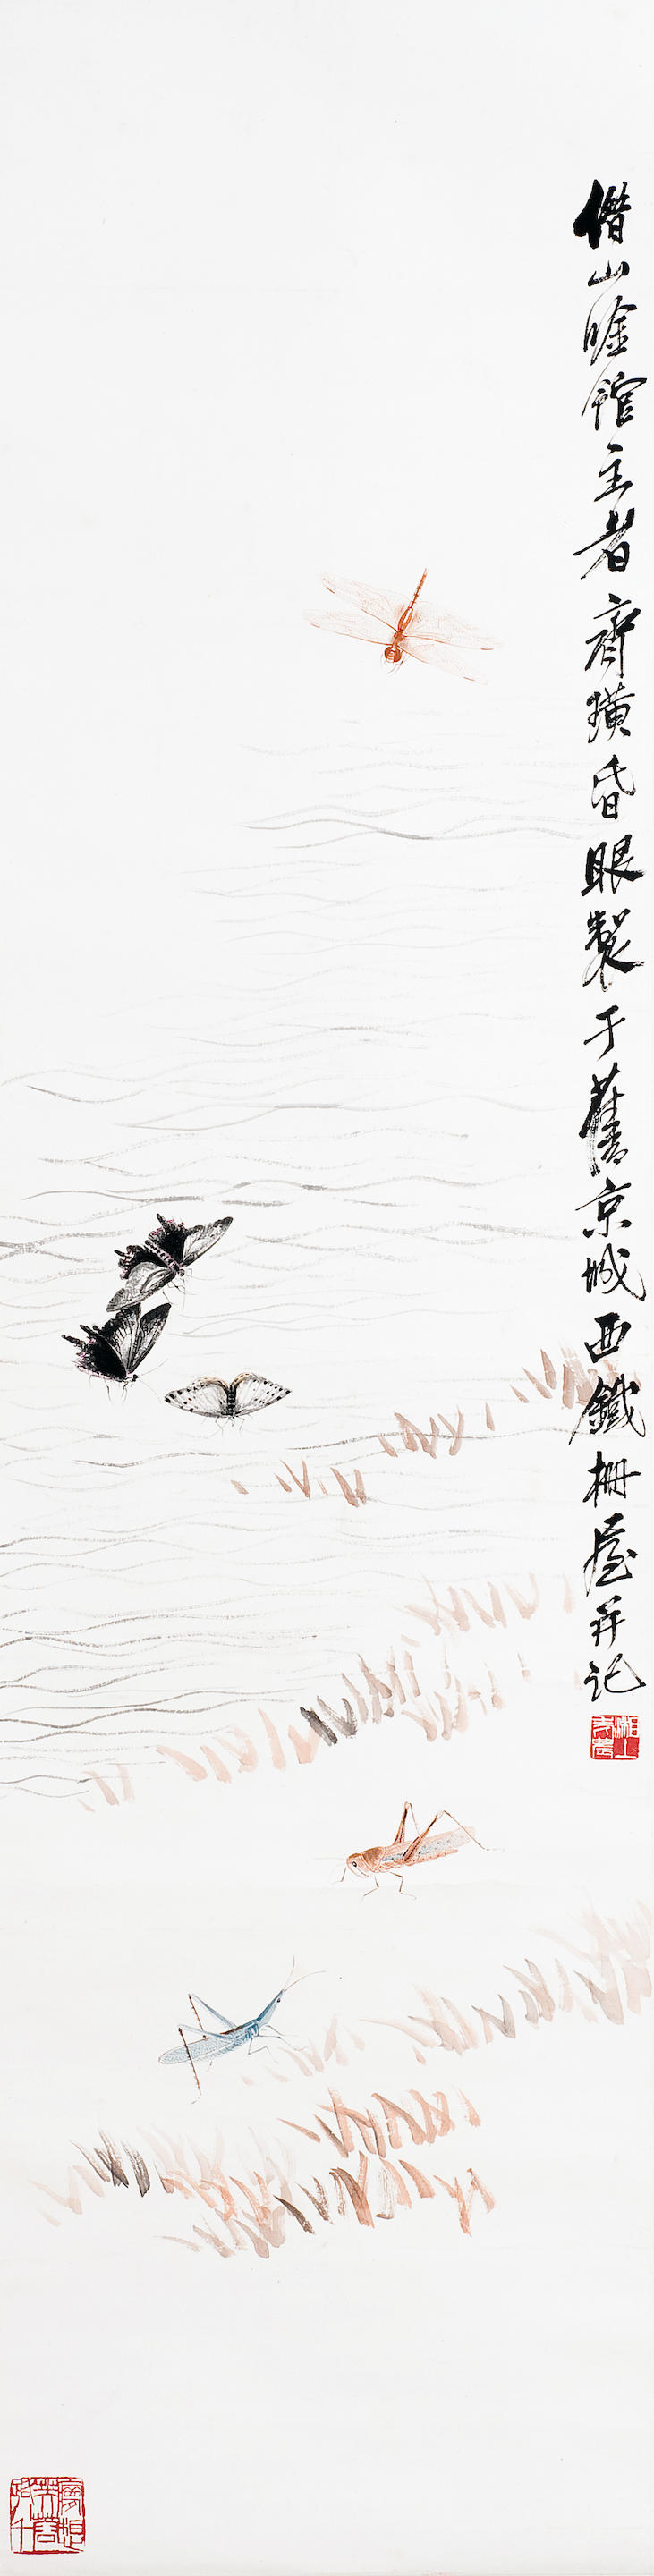 借山唫館主者齊璜昏眼製于舊京城西鐵柵屋并記
湘上老農